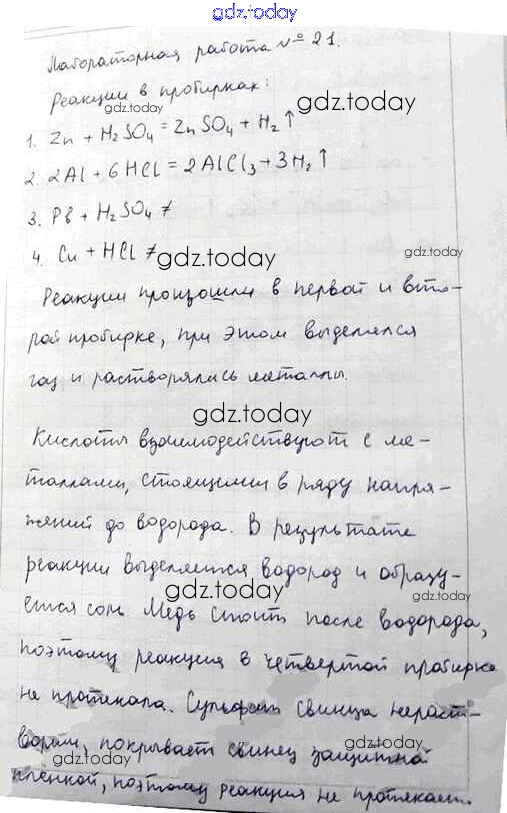 gdz.today
Лабораторная работа № 21.
Реакции в пробирках:
gdz.today
gdz.today
1. Zn + H₂SO₄ = ZnSO₄ + H₂↑
2. 2Al + 6HCl = 2AlCl₃ + 3H₂↑
gdz.today
3. Pb + H₂SO₄ ≠
4. Cu + HCl ≠
gdz.today
gdz.today
Реакции произошли в первой и вто-
рой пробирке, при этом выделялся
газ и растворялись металлы.
gdz.today
Кислоты взаимодействуют с ме-
таллами, стоящими в ряду напря-
жений до водорода. В результате
реакции выделяется водород и образу-
gdz.today
gdz.today
ется соль. Медь стоит после водорода,
поэтому реакция в четвертой пробирке
не протекала. Сульфат свинца нераст-
ворим, покрывает свинец защитной
gdz.today
пленкой, поэтому реакция не протекает.
gdz.today